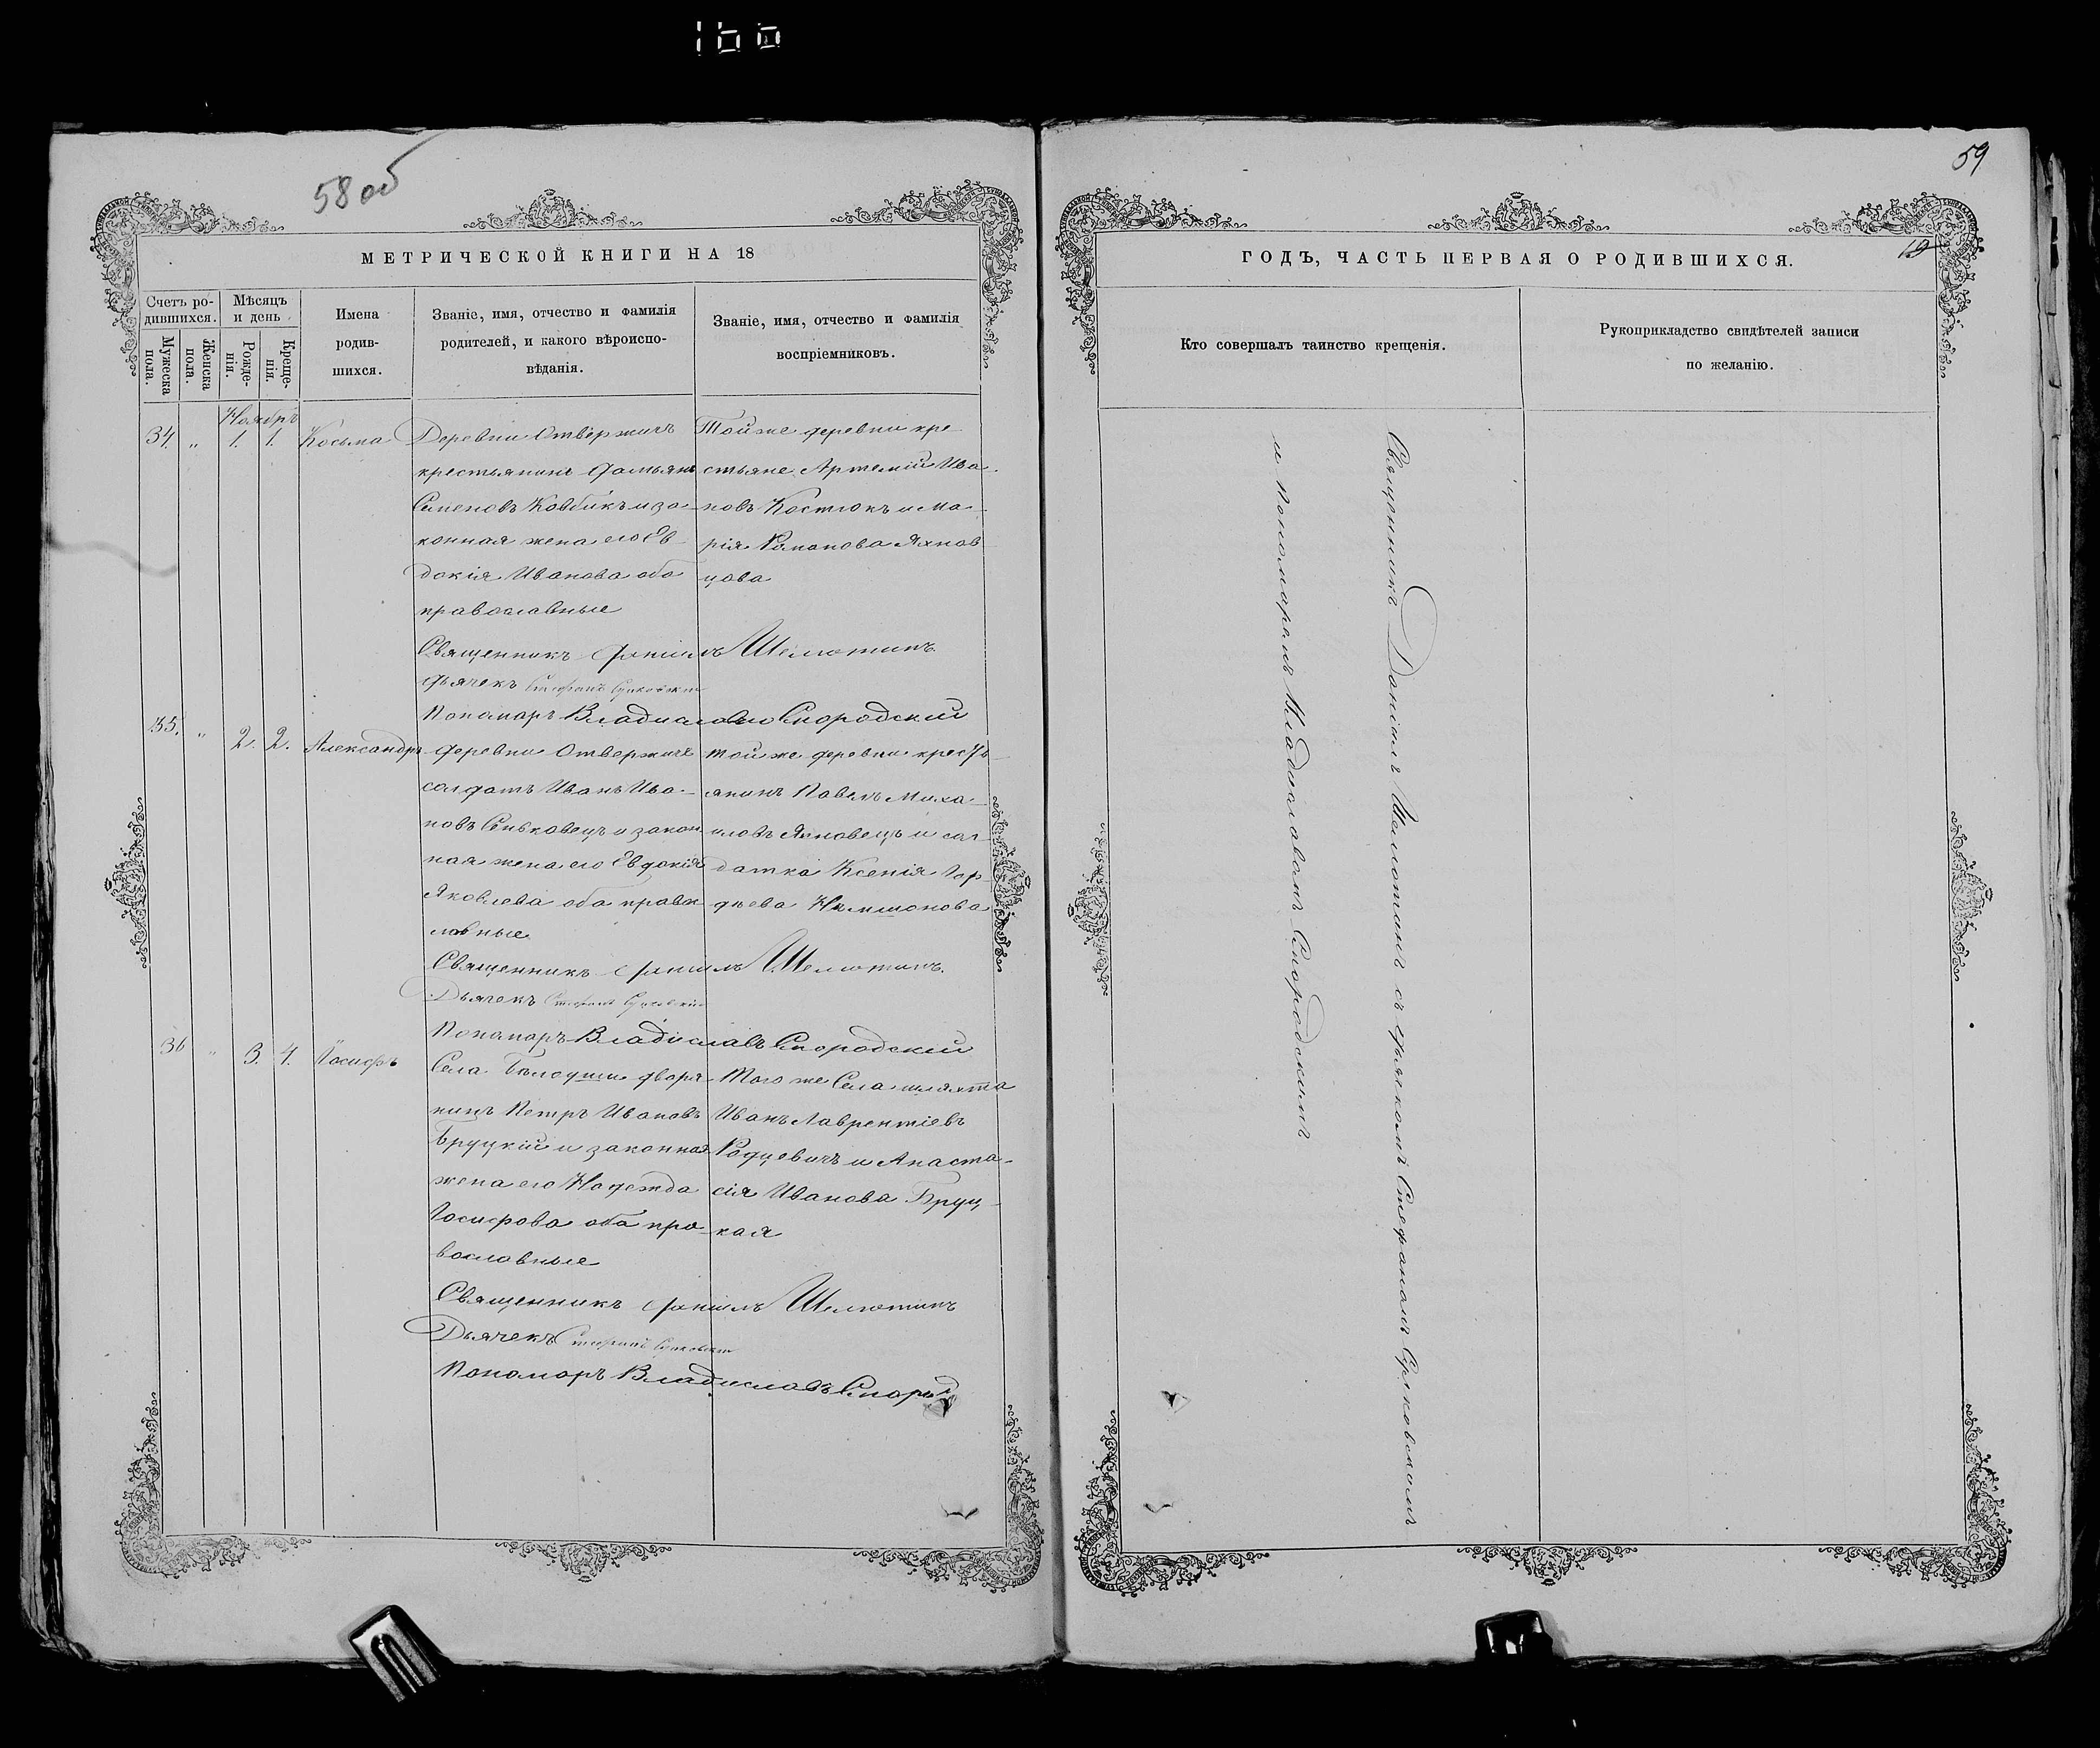 166
58 об
МЕТРИЧЕСКОЙ КНИГИ НА 18
Счетъ ро-
дившихся.
Мужеска
пола.
Женска
пола.
Мѣсяцъ
и день
Рожде-
нія.
Креще-
нія.
Имена
родив-
шихся.
Званіе, имя, отчество и фамилія
родителей, и какого вѣроиспо-
вѣданія.
Званіе, имя, отчество и фамилія
воспріемниковъ.
Ноябрь
34. " 1. 1. Косьма
Деревни Отвержичъ
крестьянинъ Дамьянъ
Семеновъ Ковбикъ и за-
конная жена его Ев
докія Иванова оба
православные
Тойже деревни кре
стьяне Артемій Ива-
новъ Костюкъ и Ма-
рія Романова Яхнов
цова
Священникъ Даніилъ Шелютинъ
Дьячекъ Стефанъ
Пономарь Владиславъ Спородский
35. " 2. 2. Александръ
Деревни Отвержичъ
солдатъ Иванъ Ива-
новъ Сеньковецъ и закон
ная жена его Евдокія
Яковлева оба право
славные
тойже деревни крестъ-
янинъ Павелъ Миха-
иловъ Яхновецъ и сол-
датка Ксенія Гор-
дѣева
Священникъ Даніилъ Шелютинъ.
Дьячекъ Стефанъ
Пономарь Владиславъ Спородский
36 " 3. 4. Іосифъ
Села дворя
нинъ Петръ Ивановъ
Бруцкій и законная
жена его Надежда
Іосифова оба пра-
вославные
Того же Села шляхта
Иванъ Лаврентіевъ
Родцевичъ и Анаста-
сія Иванова Бруц-
кая
Священникъ Даніилъ Шелютинъ
Дьячекъ Стефанъ
Пономарь Владиславъ Спород
59
ГОДЪ, ЧАСТЬ ПЕРВАЯ О РОДИВШИХСЯ.
19
Кто совершалъ таинство крещенія.
Рукоприкладство свидѣтелей записи
по желанію.
Священникъ Даніилъ Шелютинъ съ дьячкомъ Стефаномъ
и Пономаремъ Владиславомъ Спородскимъ